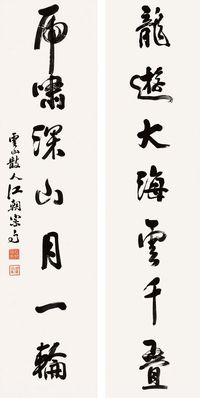 龍遊大海雲千疊
虎嘯深山月一輪
雲山散人江朝宗